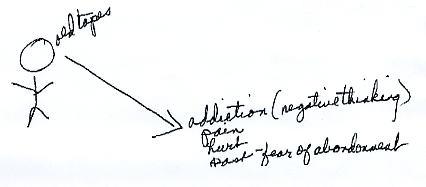 old tapes
addiction (negative thinking)
pain
hurt
past - fear of abondonment